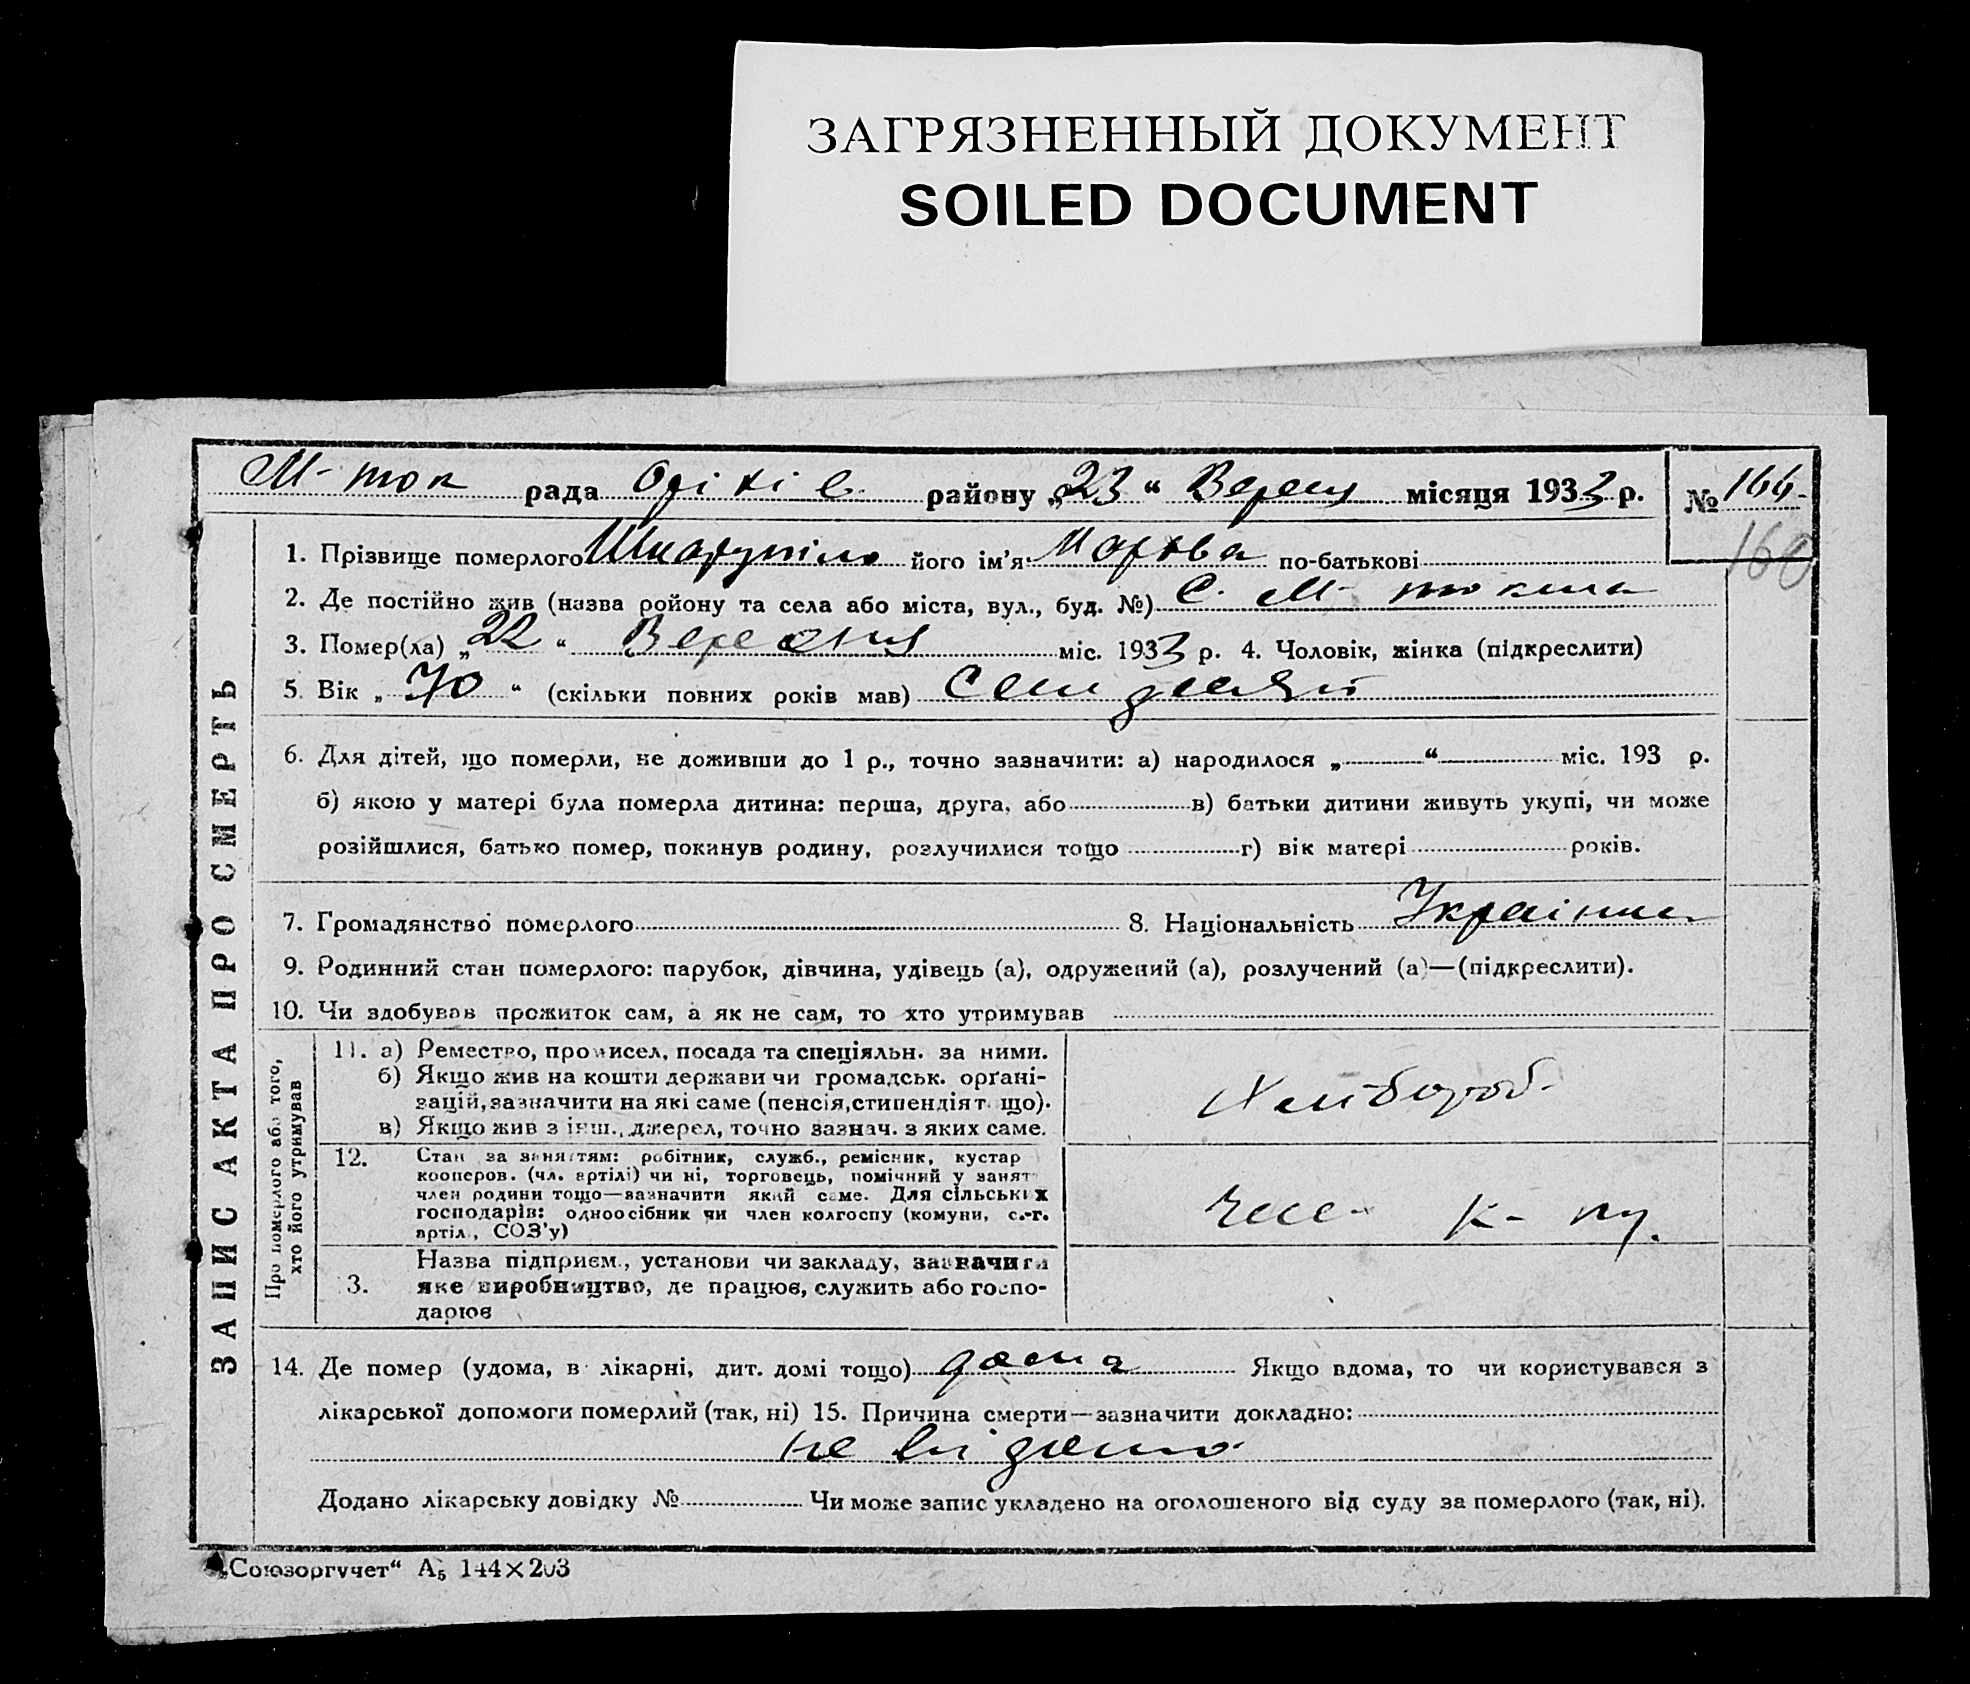 ЗАГРЯЗНЕННЫЙ ДОКУМЕНТ
SOILED DOCUMENT
М-ток рада Оріхів району „23“ Вересня місяця 1933 р. № 166
160
ЗАПИС АКТА ПРО СМЕРТЬ
1. Прізвище померлого його ім'я по-батькові
2. Де постійно жив (назва ройону та села або міста, вул., буд. №) С. М-токма
3. Помер(ла) „22“ Вересня міс. 1933 р. 4. Чоловік, жінка (підкреслити)
5. Вік „70“ (скільки повних років мав) Семидесят
6. Для дітей, що померли, не доживши до 1 р., точно зазначити: а) народилося „ “ міс. 193 р.
б) якою у матері була померла дитина: перша, друга, або в) батьки дитини живуть укупі, чи може
розійшлися, батько помер, покинув родину, розлучилися тощо г) вік матері років.
7. Громадянство померлого 8. Національність Українка
9. Родинний стан померлого: парубок, дівчина, удівець (а), одружений (а), розлучений (а)—(підкреслити).
10. Чи здобував прожиток сам, а як не сам, то хто утримував
Про померлого або того,
хто його утримував
11. а) Ремество, промисел, посада та спеціяльн. за ними.
б) Якщо жив на кошти держави чи громадськ. орґані-
зацій, зазначити на які саме (пенсія, стипендія т що).
в) Якщо жив з інш., джерел, точно зазнач. з яких саме.
Хлібороб
12. Стан за заняттям: робітник, служб., ремісник, кустар
кооперов. (чл. артілі) чи ні, торговець, помічний у занят
член родини тощо—зазначити який саме. Для сільських
господарів: одноосібник чи член колгоспу (комуни, с.-г.
артіл., СОЗ'у)
Член к-пу.
3. Назва підприєм., установи чи закладу, зазначити
яке виробництво, де працює, служить або госпо-
дарює
14. Де помер (удома, в лікарні, дит. домі тощо) дома Якщо вдома, то чи користувався з
лікарської допомоги померлий (так, ні) 15. Причина смерти—зазначити докладно:
не відомо
Додано лікарську довідку № Чи може запис укладено на оголошеного від суду за померлого (так, ні).
„Союзоргучет“ А5 144×203